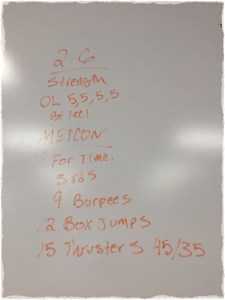 2-6
Strength
OL 5,5,5,5
By feel
METCON
For Time:
3 rds
9 Burpees
12 Box Jumps
15 Thrusters 45/35